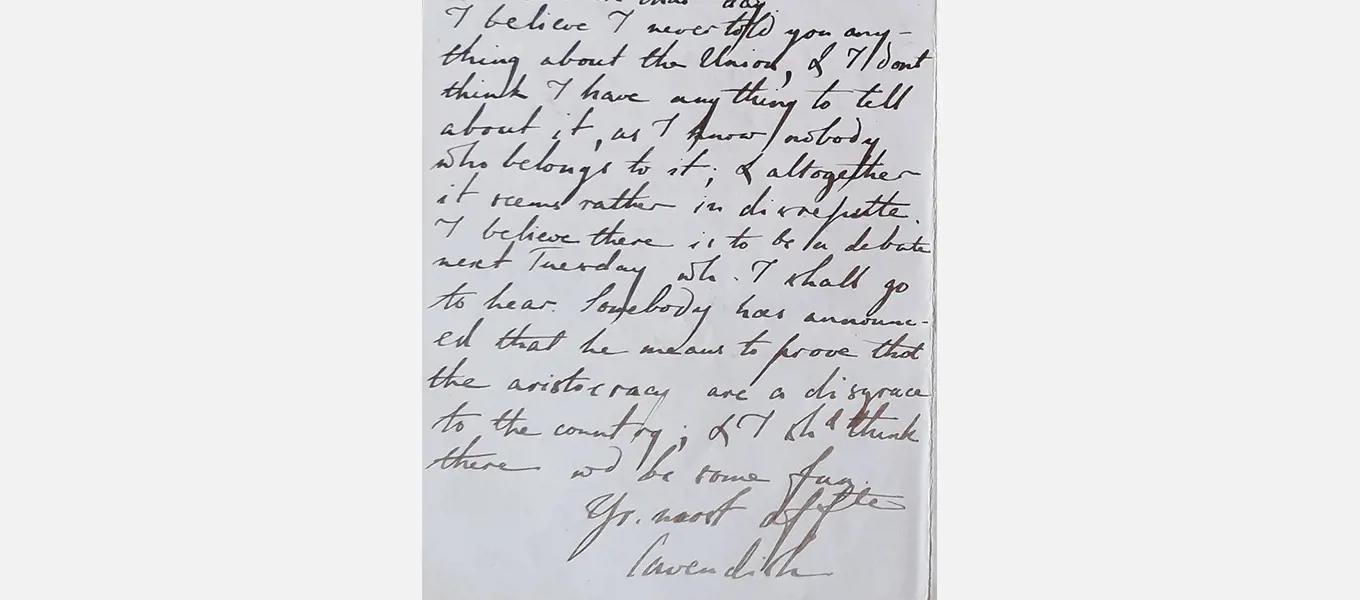 day
I believe I never told you any-
thing about the Union, & I dont
think I have anything to tell
about it, as I know nobody
who belongs to it; & altogether
it seems rather in disrepute.
I believe there is to be a debate
next Tuesday wh. I shall go
to hear. Somebody has announc-
ed that he means to prove that
the aristocracy are a disgrace
to the country; & I shd think
there wd be some fun.
Yr. most affte
Cavendish